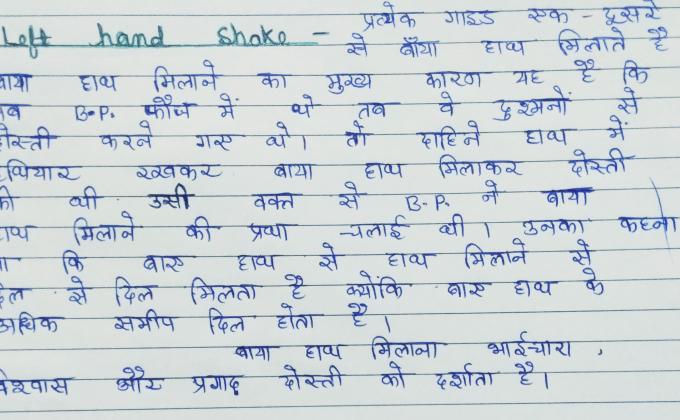 प्रत्येक गाइड एक - दूसरे
Left hand shake - से बाँया हाथ मिलाते है
बाया हाथ मिलाने का मुख्य कारण यह है कि
जब B.P. फौज में थे तब वे दुश्मनों से
दोस्ती करने गए थे। तो दाहिने हाथ में
हथियार रखकर बाया हाथ मिलाकर दोस्ती
की थी उसी वक्त से B.P. ने बाया
हाथ मिलाने की प्रथा चलाई थी। उनका कहना
था कि बाए हाथ से हाथ मिलाने से
दिल से दिल मिलता है क्योंकि बाए हाथ के
अधिक समीप दिल होता है।
बाया हाथ मिलाना भाईचारा,
विश्वास और प्रगाढ़ दोस्ती को दर्शाता है।